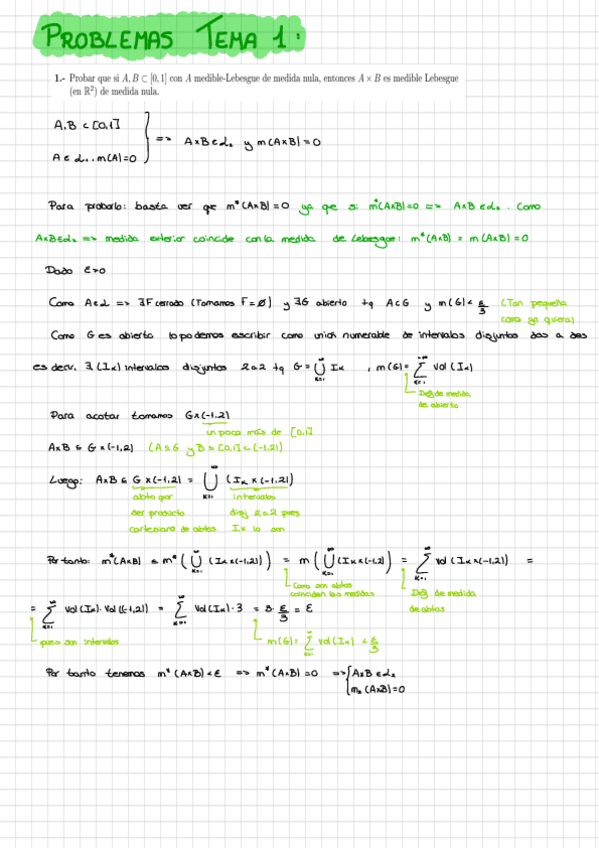 PROBLEMAS TEMA 1:
1.- Probar que si A, B ⊂ [0, 1] con A medible-Lebesgue de medida nula, entonces A × B es medible Lebesgue
(en ℝ²) de medida nula.
A,B ⊂ [0,1]
A ∈ L₁, m(A)=0
=> A×B ∈ L₂ y m(A×B)=0
Para probarlo: basta ver que m*(A×B)=0 ya que si m*(A×B)=0 => A×B ∈ L₂. Como
A×B ∈ L₂ => medida exterior coincide con la medida de Lebesgue: m*(A×B) = m(A×B)=0
Dado ε>0
Como A∈L => ∃F cerrado (Tomamos F=∅) y ∃G abierto tq A⊂G y m(G)< ε/3 (Tan pequeña
como yo quiera)
Como G es abierto lo podemos escribir como unión numerable de intervalos disjuntos dos a dos
es decir, ∃ (Iₖ) intervalos disjuntos 2 a 2 tq G = ⋃ₖ₌₁^∞ Iₖ , m(G) = ∑ₖ₌₁^∞ vol(Iₖ)
Def de medida
de abierto
Para acotar tomamos G×(-1,2)
un poco más de [0,1]
A×B ⊆ G×(-1,2) (A⊆G y B⊆[0,1]⊂(-1,2))
Luego: A×B ⊆ G×(-1,2) = ⋃ₖ₌₁^∞ (Iₖ×(-1,2))
abto por intervalos
ser producto disj 2 a 2 pues
cartesiano de abtos Iₖ lo son
Por tanto: m*(A×B) ≤ m*(⋃ₖ₌₁^∞ (Iₖ×(-1,2))) = m(⋃ₖ₌₁^∞ (Iₖ×(-1,2))) = ∑ₖ₌₁^∞ vol(Iₖ×(-1,2)) =
Como son abtos Def de medida
coinciden las medidas de abtos
= ∑ₖ₌₁^∞ vol(Iₖ)·vol((-1,2)) = ∑ₖ₌₁^∞ vol(Iₖ)·3 = 3·ε/3 = ε
pues son intervalos m(G)=∑ₖ₌₁^∞ vol(Iₖ) < ε/3
Por tanto tenemos m*(A×B)<ε => m*(A×B)=0 => A×B ∈ L₂
m₂(A×B)=0